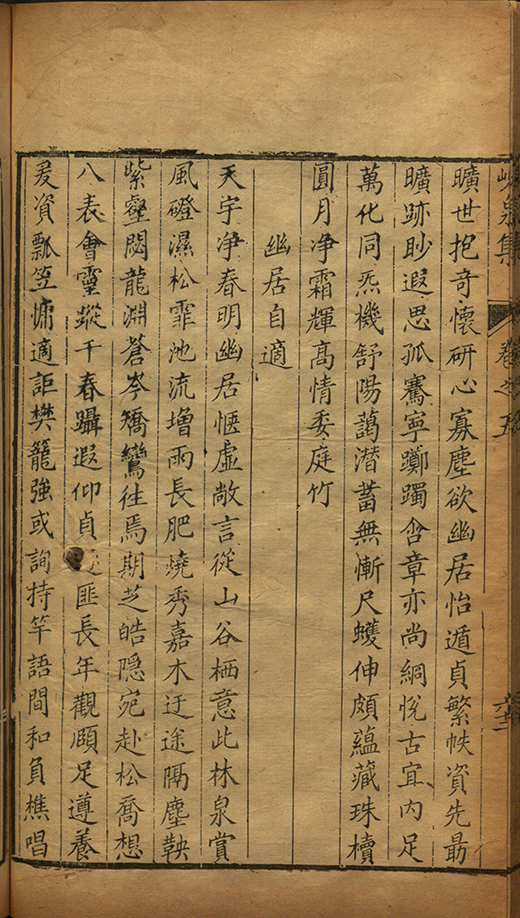 峴泉集 卷之五 六十二
曠世抱奇懷研心寡塵欲幽居怡遁貞繁帙資先勗
曠跡眇遐思孤騫寧躑躅含章亦尚絅悅古宜內足
萬化同炁機舒陽藹潛蓄無慚尺蠖伸頗蘊藏珠櫝
圓月净霜輝高情委庭竹
幽居自適
天宇净春明幽居愜虛敞言從山谷栖意此林泉賞
風磴濕松霏池流增雨長肥燒秀嘉木迂途隔塵鞅
紫壑閟龍淵蒼岑矯鸞徃焉期芝皓隐宛赴松喬想
八表會靈蹤千春躡遐仰貞匪長年觀頤足遵養
爰資瓢笠慵適詎樊籠強或詢持竿語間和負樵唱